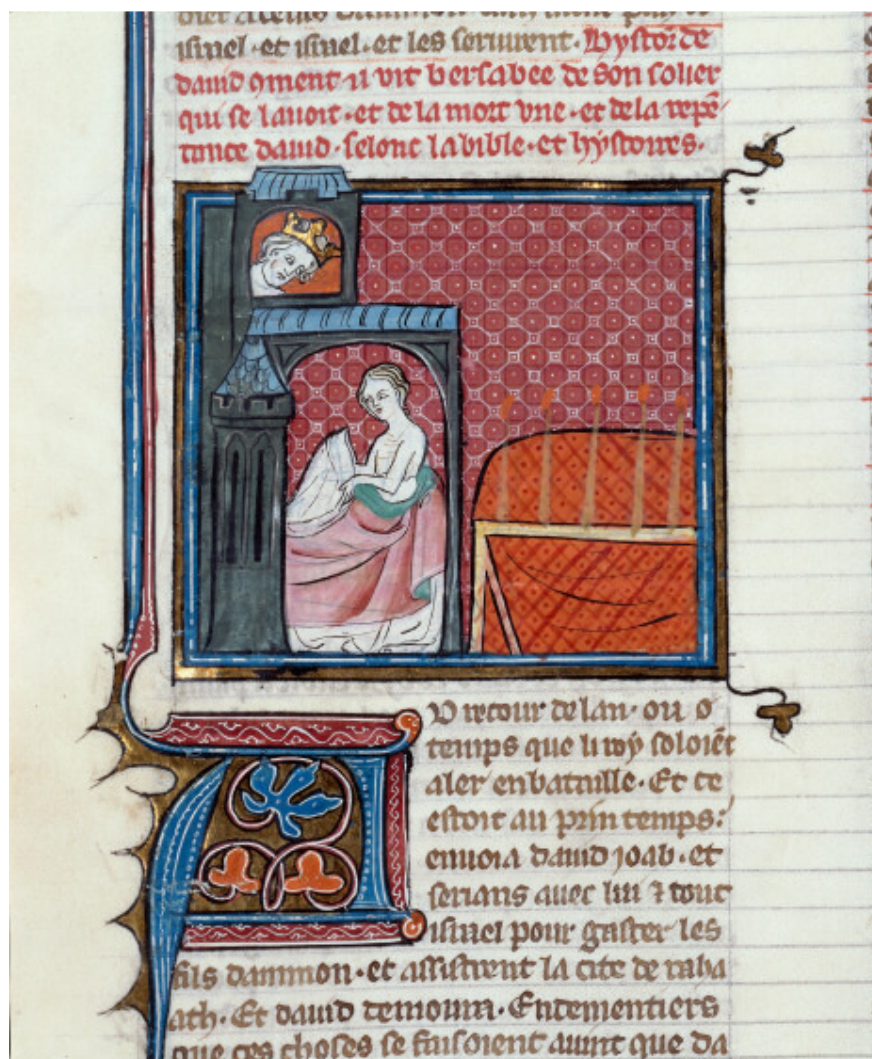 israel · et israel · et les seruirent. Hystoire de
dauid 9ment il vit bersabee de son solier
qui se lauoit · et de la mort vrie · et de la repē
tance dauid · selonc la bible · et hystoires ·
U retour de lan · ou ō
temps que li roy soloiēt
aler en bataille · Et ce
estoit au prin temps :
enuoia dauid ioab · et
serians auec lui ⁊ tout
israel pour gaster les
fils dammon · et assistrent la cite de raba
ath · Et dauid demoura · Endementiers
que ces choses se faisoient auint que da